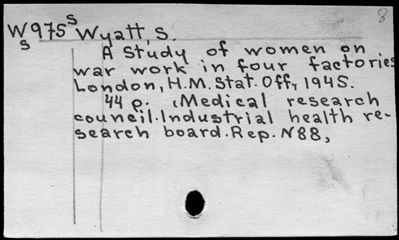 8
W975s Wyatt, S.
s
A study of women on
war work in four factories
London, H.M. Stat. Off., 1945.
44 p. (Medical research
council. Industrial health re-
search board. Rep. N88,